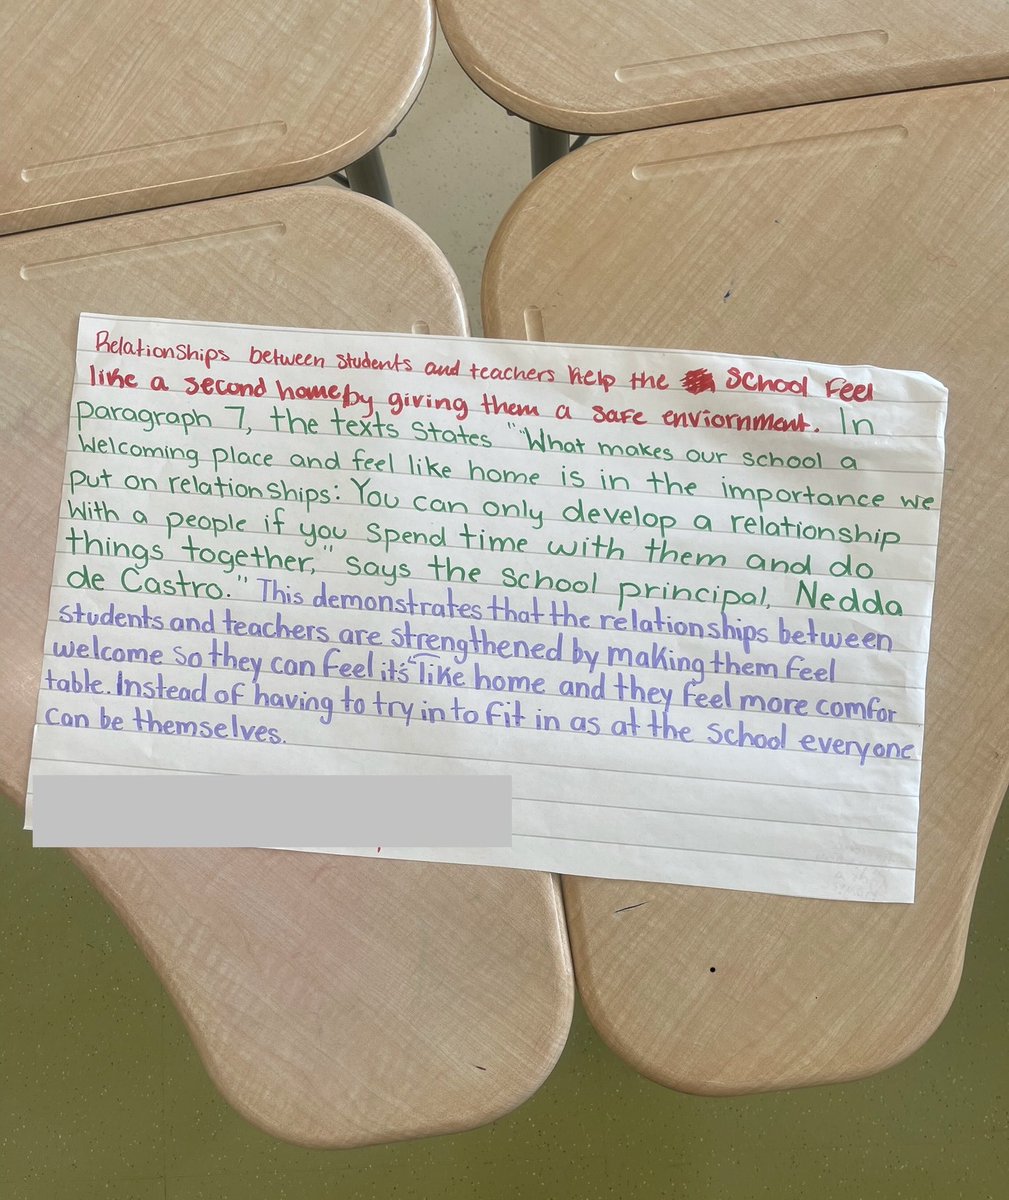 Relationships between students and teachers help the school feel
like a second home by giving them a safe enviornment. In
paragraph 7, the texts states "What makes our school a
welcoming place and feel like home is in the importance we
put on relationships: You can only develop a relationship
with a people if you spend time with them and do
things together," says the school principal, Nedda
de Castro." This demonstrates that the relationships between
students and teachers are strengthened by making them feel
welcome so they can feel its "like home and they feel more comfor
table. Instead of having to try in to fit in as at the school everyone
can be themselves.